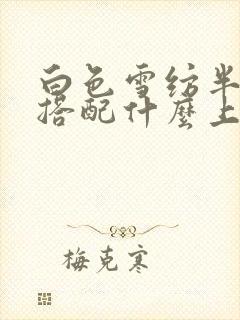 白色雪纺半
搭配什麽上
梅克寒